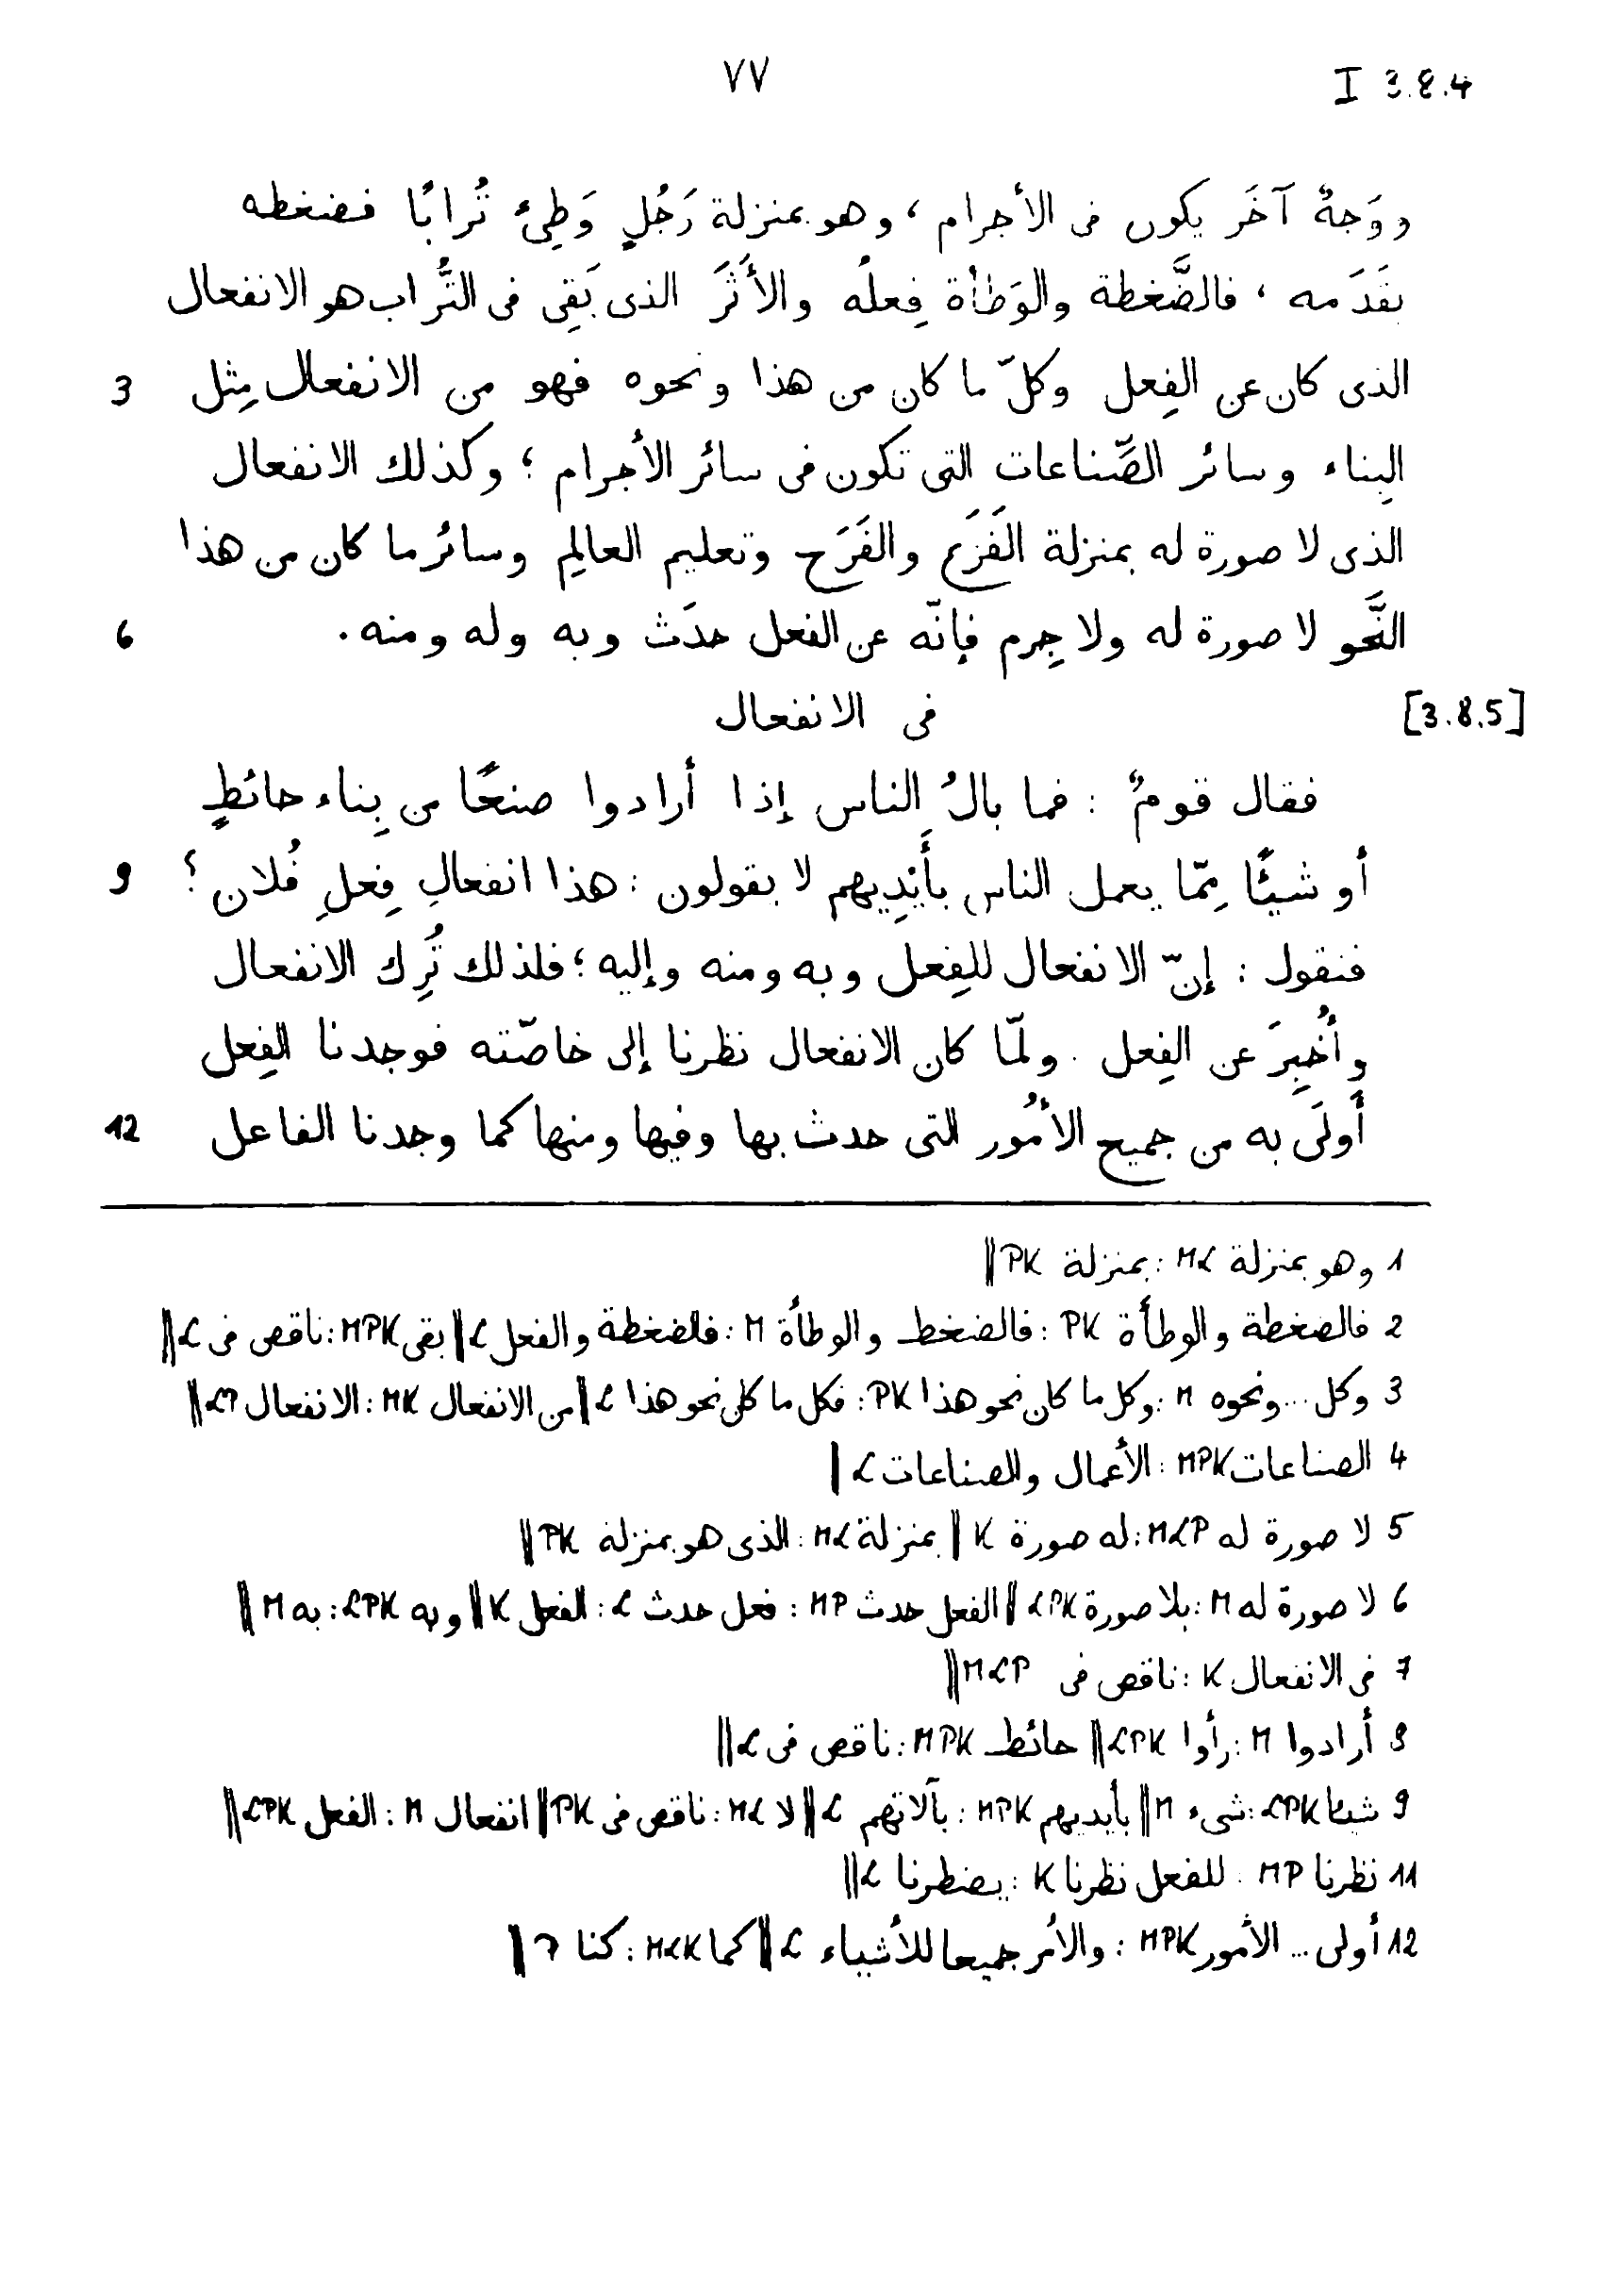 I 3.8.4 ٧٧
ووَجهٌ آخَر يكون فى الأجرام ، وهو بمنزلة رَجُلٍ وَطِئَ تُرابًا فضغطه
بقَدَمه ، فالضَّغطة والوَطأة فِعلُه والأَثَرَ الذى بَقِى فى التُّراب هو الانفعال
الذى كان عن الفِعل وكلّ ما كان من هذا ونحوه فهو من الانفعال مِثل 3
البِناء وسائر الصَّناعات التى تكون فى سائر الأجرام ؛ وكذلك الانفعال
الذى لا صورة له بمنزلة الفَزَع والفَرَح وتعليم العالِم وسائر ما كان من هذا
النَّحو لا صورة له ولا جِرم فإنّه عن الفعل حدَث وبه وله ومنه . 6
[3.8.5] فى الانفعال
فقال قومٌ : فما بالُ الناس إذا أرادوا صنعًا من بِناء حائطٍ
أو شيئًا مِمّا يعمل الناس بأَيْدِيهم لا يقولون : هذا انفعالِ فِعلِ فُلان ؟ 9
فنقول : إنّ الانفعال للفِعل وبه ومنه وإليه ؛ فلذلك تُرِك الانفعال
وأُخبِرَ عن الفِعل . ولمّا كان الانفعال نظرنا إلى خاصّته فوجدنا الفِعل
أَولَى به من جميع الأُمُور التى حدث بها وفيها ومنها كما وجدنا الفاعل 12
1 وهو بمنزلة ML : بمنزلة PK ||
2 فالضغطة والوطأة PK : فالضغط والوطأة M : فالضغطة والفعل L || بقى MPK : ناقص فى L ||
3 وكل ... ونحوه M : وكل ما كان نحو هذا PK : فكل ما كان نحو هذا L || من الانفعال MK : الانفعال LP ||
4 الصناعات MPK : الأعمال والصناعات L ||
5 لا صورة له MLP : له صورة K || بمنزلة ML : الذى هو بمنزلة PK ||
6 لا صورة له M : بلا صورة LPK || الفعل حدث MP : فعل حدث L : الفعل K || وبه LPK : به M ||
7 فى الانفعال K : ناقص فى MLP ||
8 أرادوا M : رأوا LPK || حائط MPK : ناقص فى L ||
9 شيئا LPK : شىء M || بأيديهم MPK : بآلاتهم L || لا ML : ناقص فى PK || انفعال M : الفعل LPK ||
11 نظرنا MP : للفعل نظرنا K : يضطرنا L ||
12 أولى ... الأمور MPK : والأمر جميعا للأشياء L || كما MLK : كنا P ||